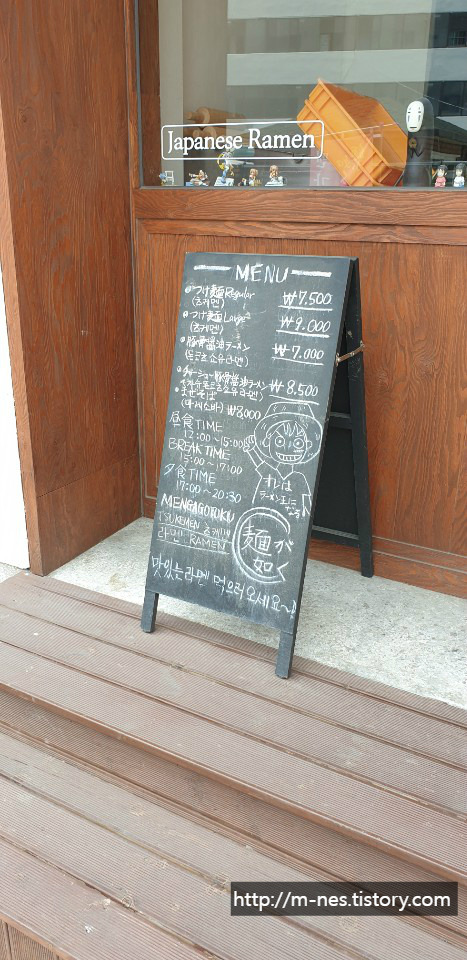 Japanese Ramen
MENU
つけ麺 Regular ₩7,500
(츠케멘)
つけ麺 Large ₩9,000
(츠케멘)
豚骨醤油ラーメン ₩7,000
(돈코츠소유라멘)
チャーシュー豚骨醤油ラーメン ₩8,500
(차슈돈코츠소유라멘)
まぜそば
(마제소바) ₩8,000
昼食TIME
12:00~15:00
BREAK TIME
15:00~17:00
夕食TIME
17:00~20:30
オレは
ラーメン王に
なる
MENGAGOTOKU
TSUKEMEN 츠케멘
라멘 RAMEN
麺が
如く
맛있는라멘 먹으러오세요~!
http://m-nes.tistory.com